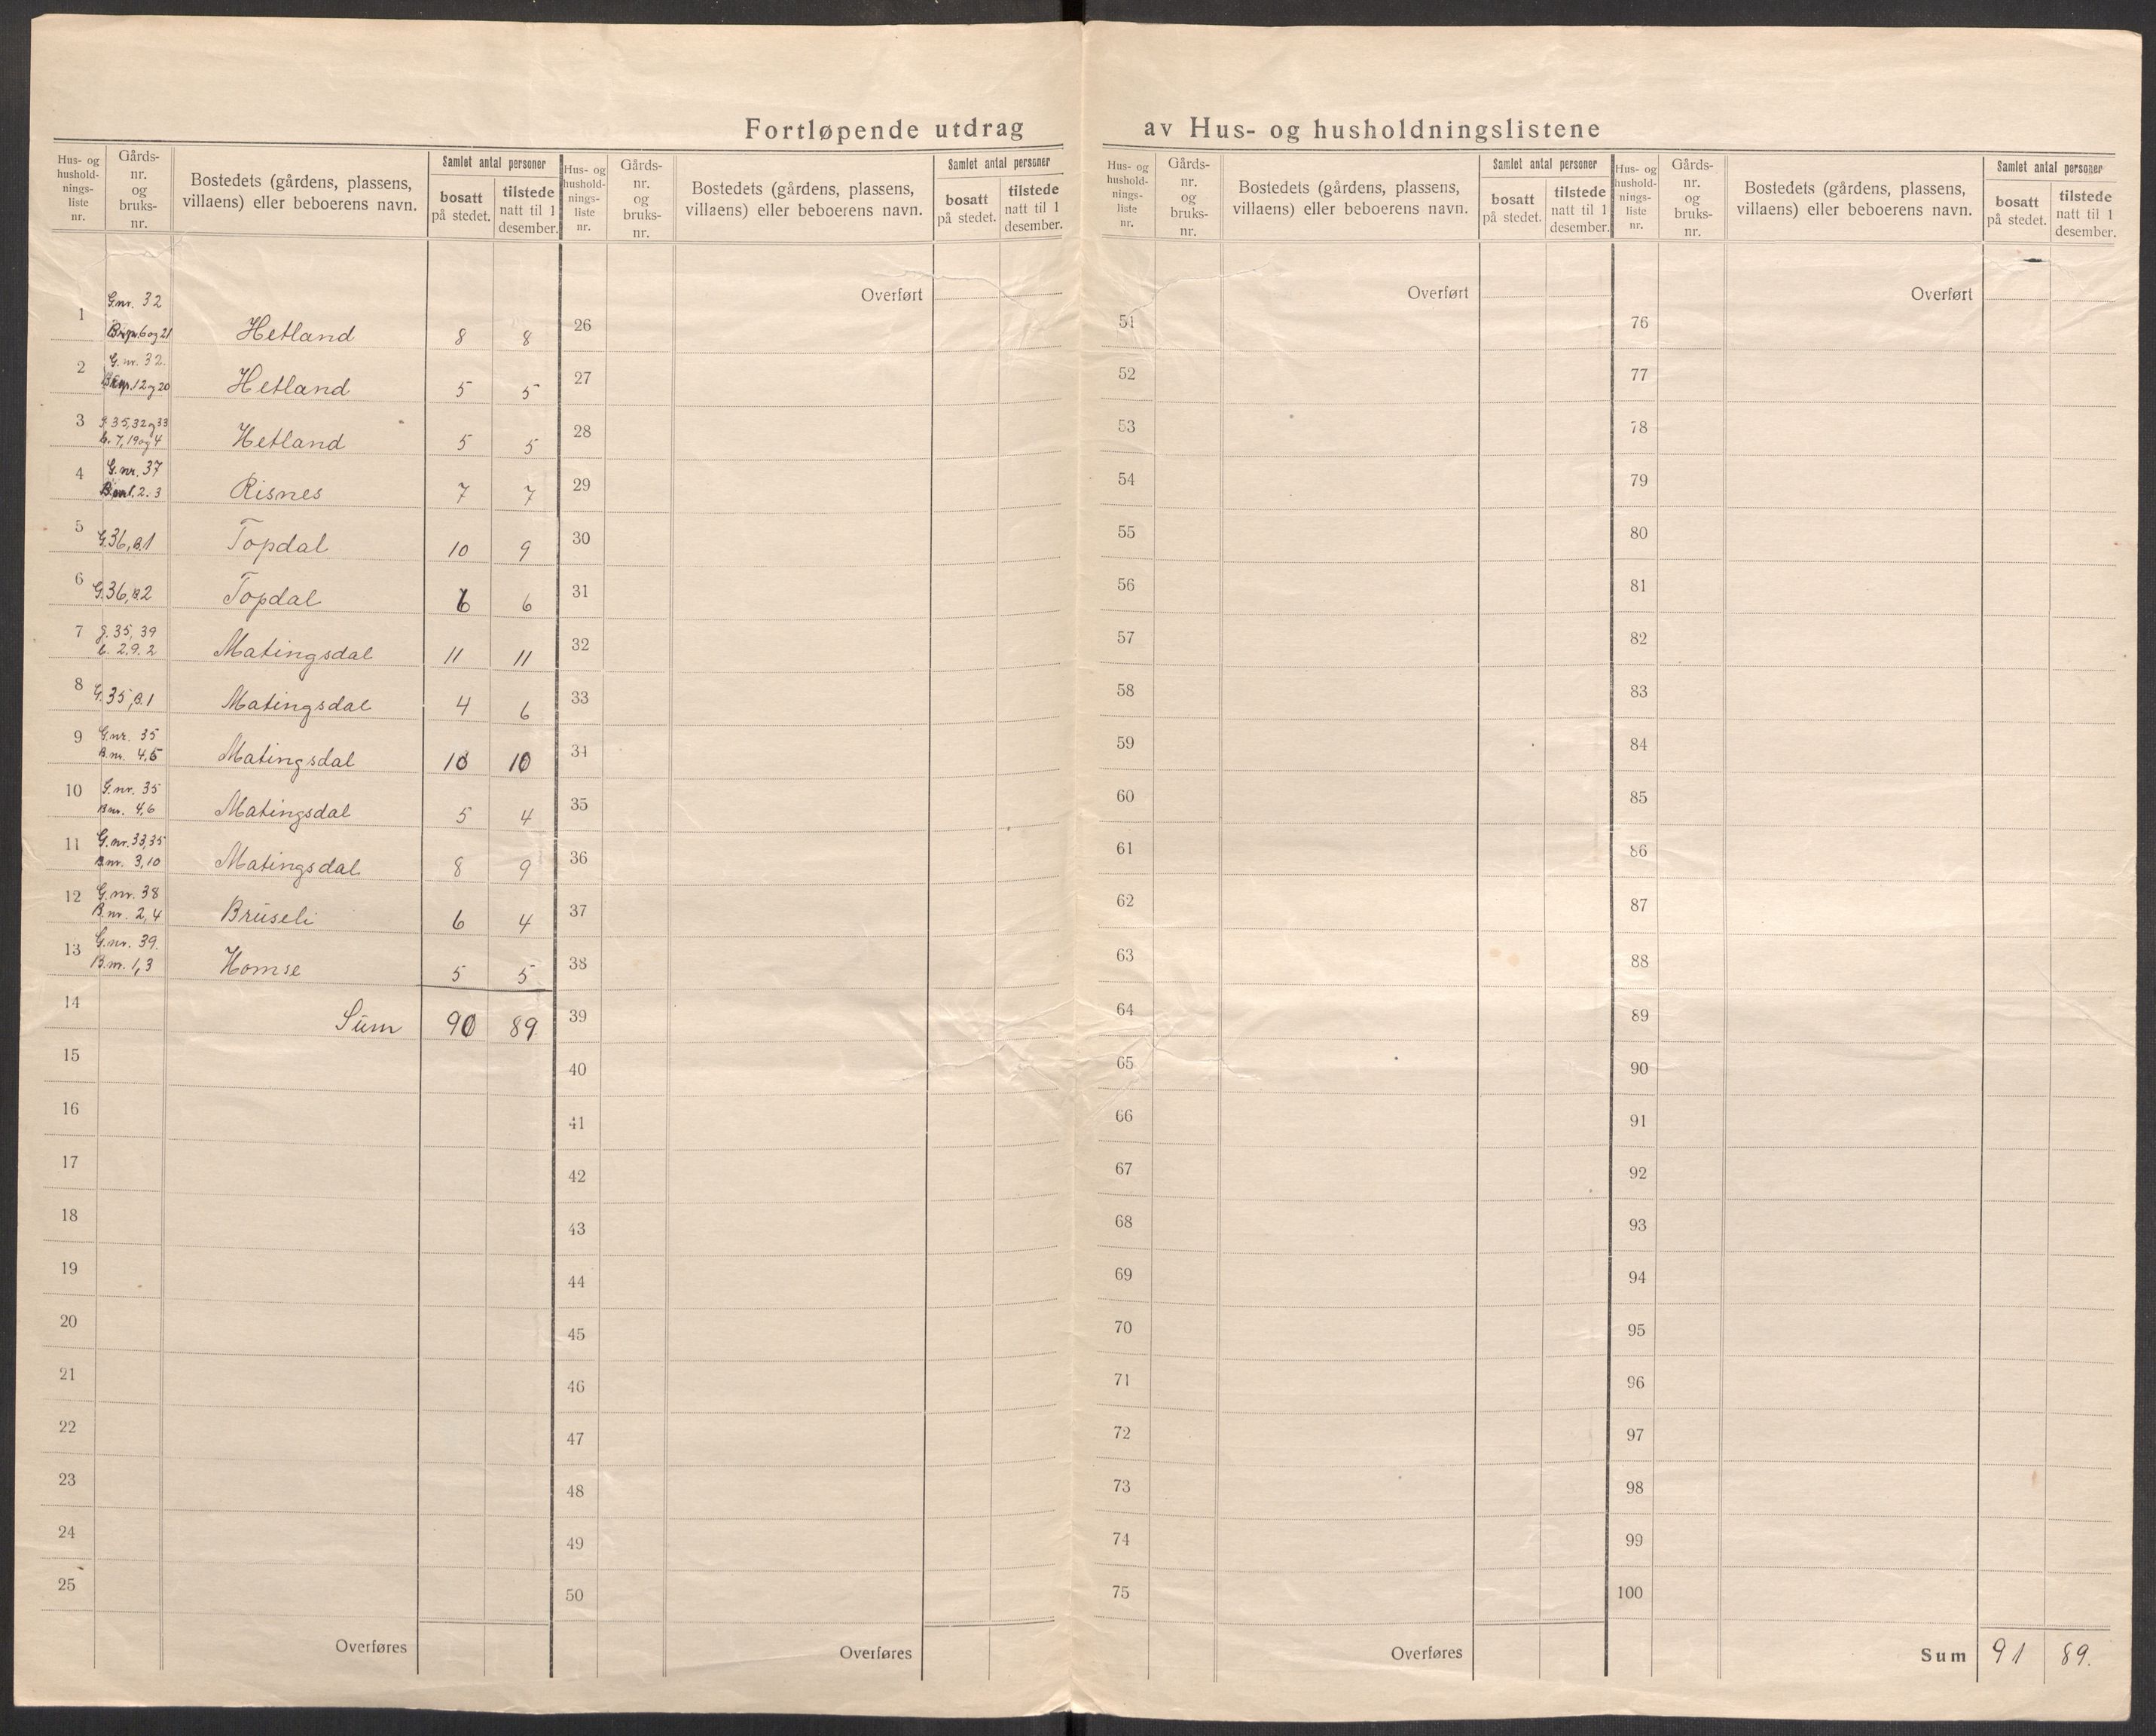 Fortløpende utdrag av Hus- og husholdningslistene
Hus- og hushold-nings-liste nr. Gårds-nr. og bruks-nr. Bostedets (gårdens, plassens, villaens) eller beboerens navn. Samlet antal personer bosatt på stedet. tilstede natt til 1 desember.
Hus- og hushold-nings-liste nr. Gårds-nr. og bruks-nr. Bostedets (gårdens, plassens, villaens) eller beboerens navn. Samlet antal personer bosatt på stedet. tilstede natt til 1 desember.
Hus- og hushold-nings-liste nr. Gårds-nr. og bruks-nr. Bostedets (gårdens, plassens, villaens) eller beboerens navn. Samlet antal personer bosatt på stedet. tilstede natt til 1 desember.
Hus- og hushold-nings-liste nr. Gårds-nr. og bruks-nr. Bostedets (gårdens, plassens, villaens) eller beboerens navn. Samlet antal personer bosatt på stedet. tilstede natt til 1 desember.
G.nr. 32
1 6 og 21 Hetland 8 8
G.nr. 32.
2 12 og 20 Hetland 5 5
g. 35, 32 og 33
3 b. 7, 19 og 4 Hetland 5 5
G.nr. 37
4 2. 3 Risnes 7 7
5 G.36, B.1 Topdal 10 9
6 G.36, B.2 Topdal 6 6
g. 35, 39
7 b. 2.9. 2 Matingsdal 11 11
8 G.35, B.1 Matingsdal 4 6
G.nr. 35
9 B.nr. 4,5 Matingsdal 10 10
G.nr. 35
10 B.nr. 4,6 Matingsdal 5 4
G.nr. 33,35
11 B.nr. 3,10 Matingsdal 8 9
G.nr. 38
12 B.nr. 2,4 Brüseli 6 4
G.nr. 39.
13 B.nr. 1,3 Homse 5 5
14 Süm 90 89
15
16
17
18
19
20
21
22
23
24
25
Overføres
Overført
26
27
28
29
30
31
32
33
34
35
36
37
38
39
40
41
42
43
44
45
46
47
48
49
50
Overføres
Overført
51
52
53
54
55
56
57
58
59
60
61
62
63
64
65
66
67
68
69
70
71
72
73
74
75
Overføres
Overført
76
77
78
79
80
81
82
83
84
85
86
87
88
89
90
91
92
93
94
95
96
97
98
99
100
Sum 91 89.